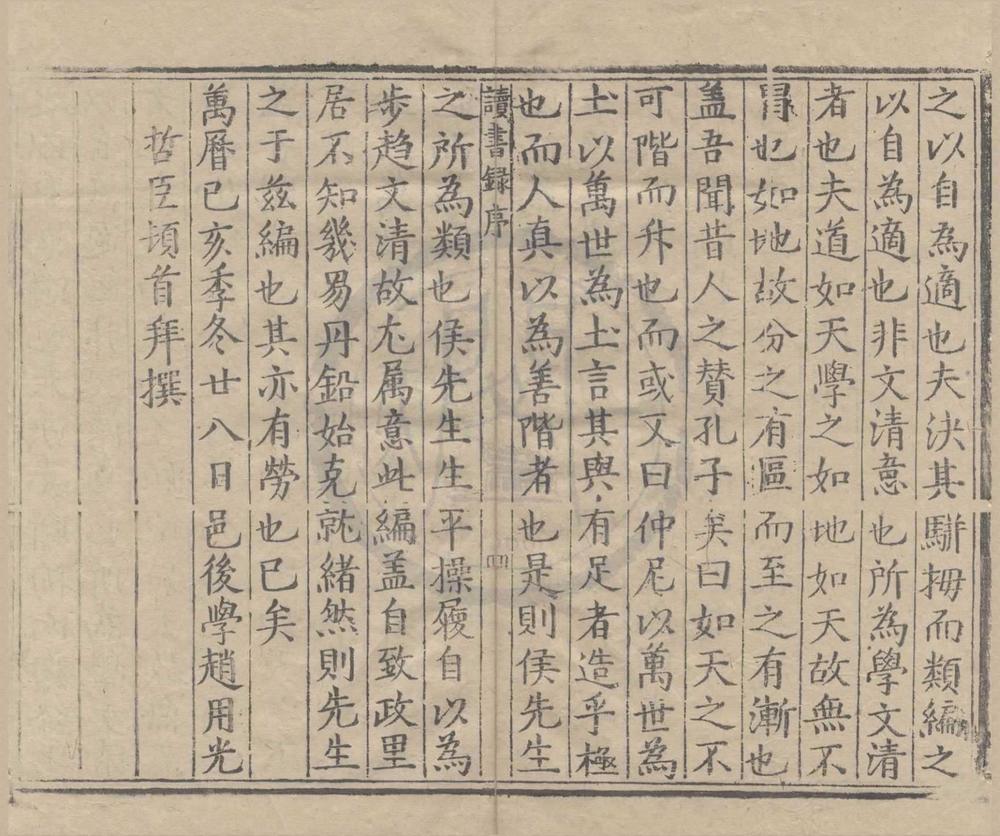 之以自為適也夫決其駢拇而類編之
以自為適也非文清意也所為學文清
者也夫道如天學之如地如天故無不
冒也如地故分之有區而至之有漸也
盖吾聞昔人之賛孔子矣曰如天之不
可階而升也而或又曰仲尼以萬世為
土以萬世為土言其與有足者造乎極
也而人真以為善階者也是則侯先生
讀書録序
四
之所為類也侯先生生平操履自以為
步趋文清故尤属意此編盖自致政里
居不知幾易丹鉛始克就緒然則先生
之于兹編也其亦有勞也已矣
萬曆已亥季冬廿八日邑後學趙用光
哲臣頓首拜撰